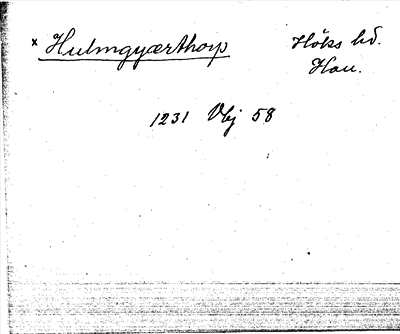 × Hulmgyærthorp
Höks hd.
Hall.
1231 Vbj 58